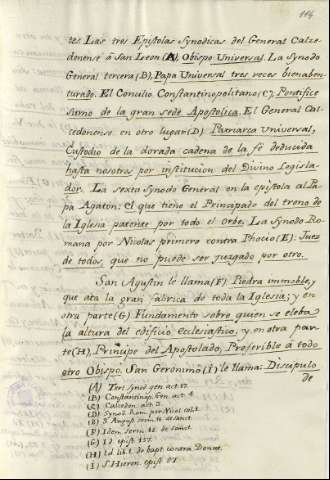 114
tes Las tres Epistolas Synodicas del General Calze-
donense á San Leon (A), Obispo Universal. La Synodo
General tercera (B), Papa Universal tres veces bienaben-
turado. El Concilio Constantinopolitano (C) Pontifice
sumo de la gran sede Apostolica. El General Cal-
cedonense en otro lugar (D) Patriarca Universal,
Custodio de la dorada cadena de la fé deducida
hasta nosotros por institucion del Divino Legisla-
dor. La sexta Synodo General en la epistola al Pa-
pa Agaton: el que tiene el Principado del treno de
la Iglesia patente por todo el Orbe. La Synodo Ro-
mana por Nicolas primero contra Phocio (E): Juez
de todos, que no puede ser juzgado por otro.
San Agustin le llama (F) Piedra immoble,
que ata la gran fabrica de toda la Iglesia; y en
otra parte (G) Fundamento sobre quien se eleba
la altura del edificio ecclesiastico, y en otra par-
te (H), Principe del Apostolado, Preferible á todo
otro Obispo. San Geronimo (I) le llama: Discipulo
de
(A) Tert. Synod. gen. act.
(B) Constantinop. Gen. act. 4
(C) Calcedon. act. 3.
(D) Synod. Rom. por Nicol. cab. 1
(E) S. August. serm. de sanct.
(F) Idem serm. 16. de sanct.
(G) Id. epist. 157.
(H) Id. lib. 2. de bapt. contra Donat.
(I) S. Hieron. epist.